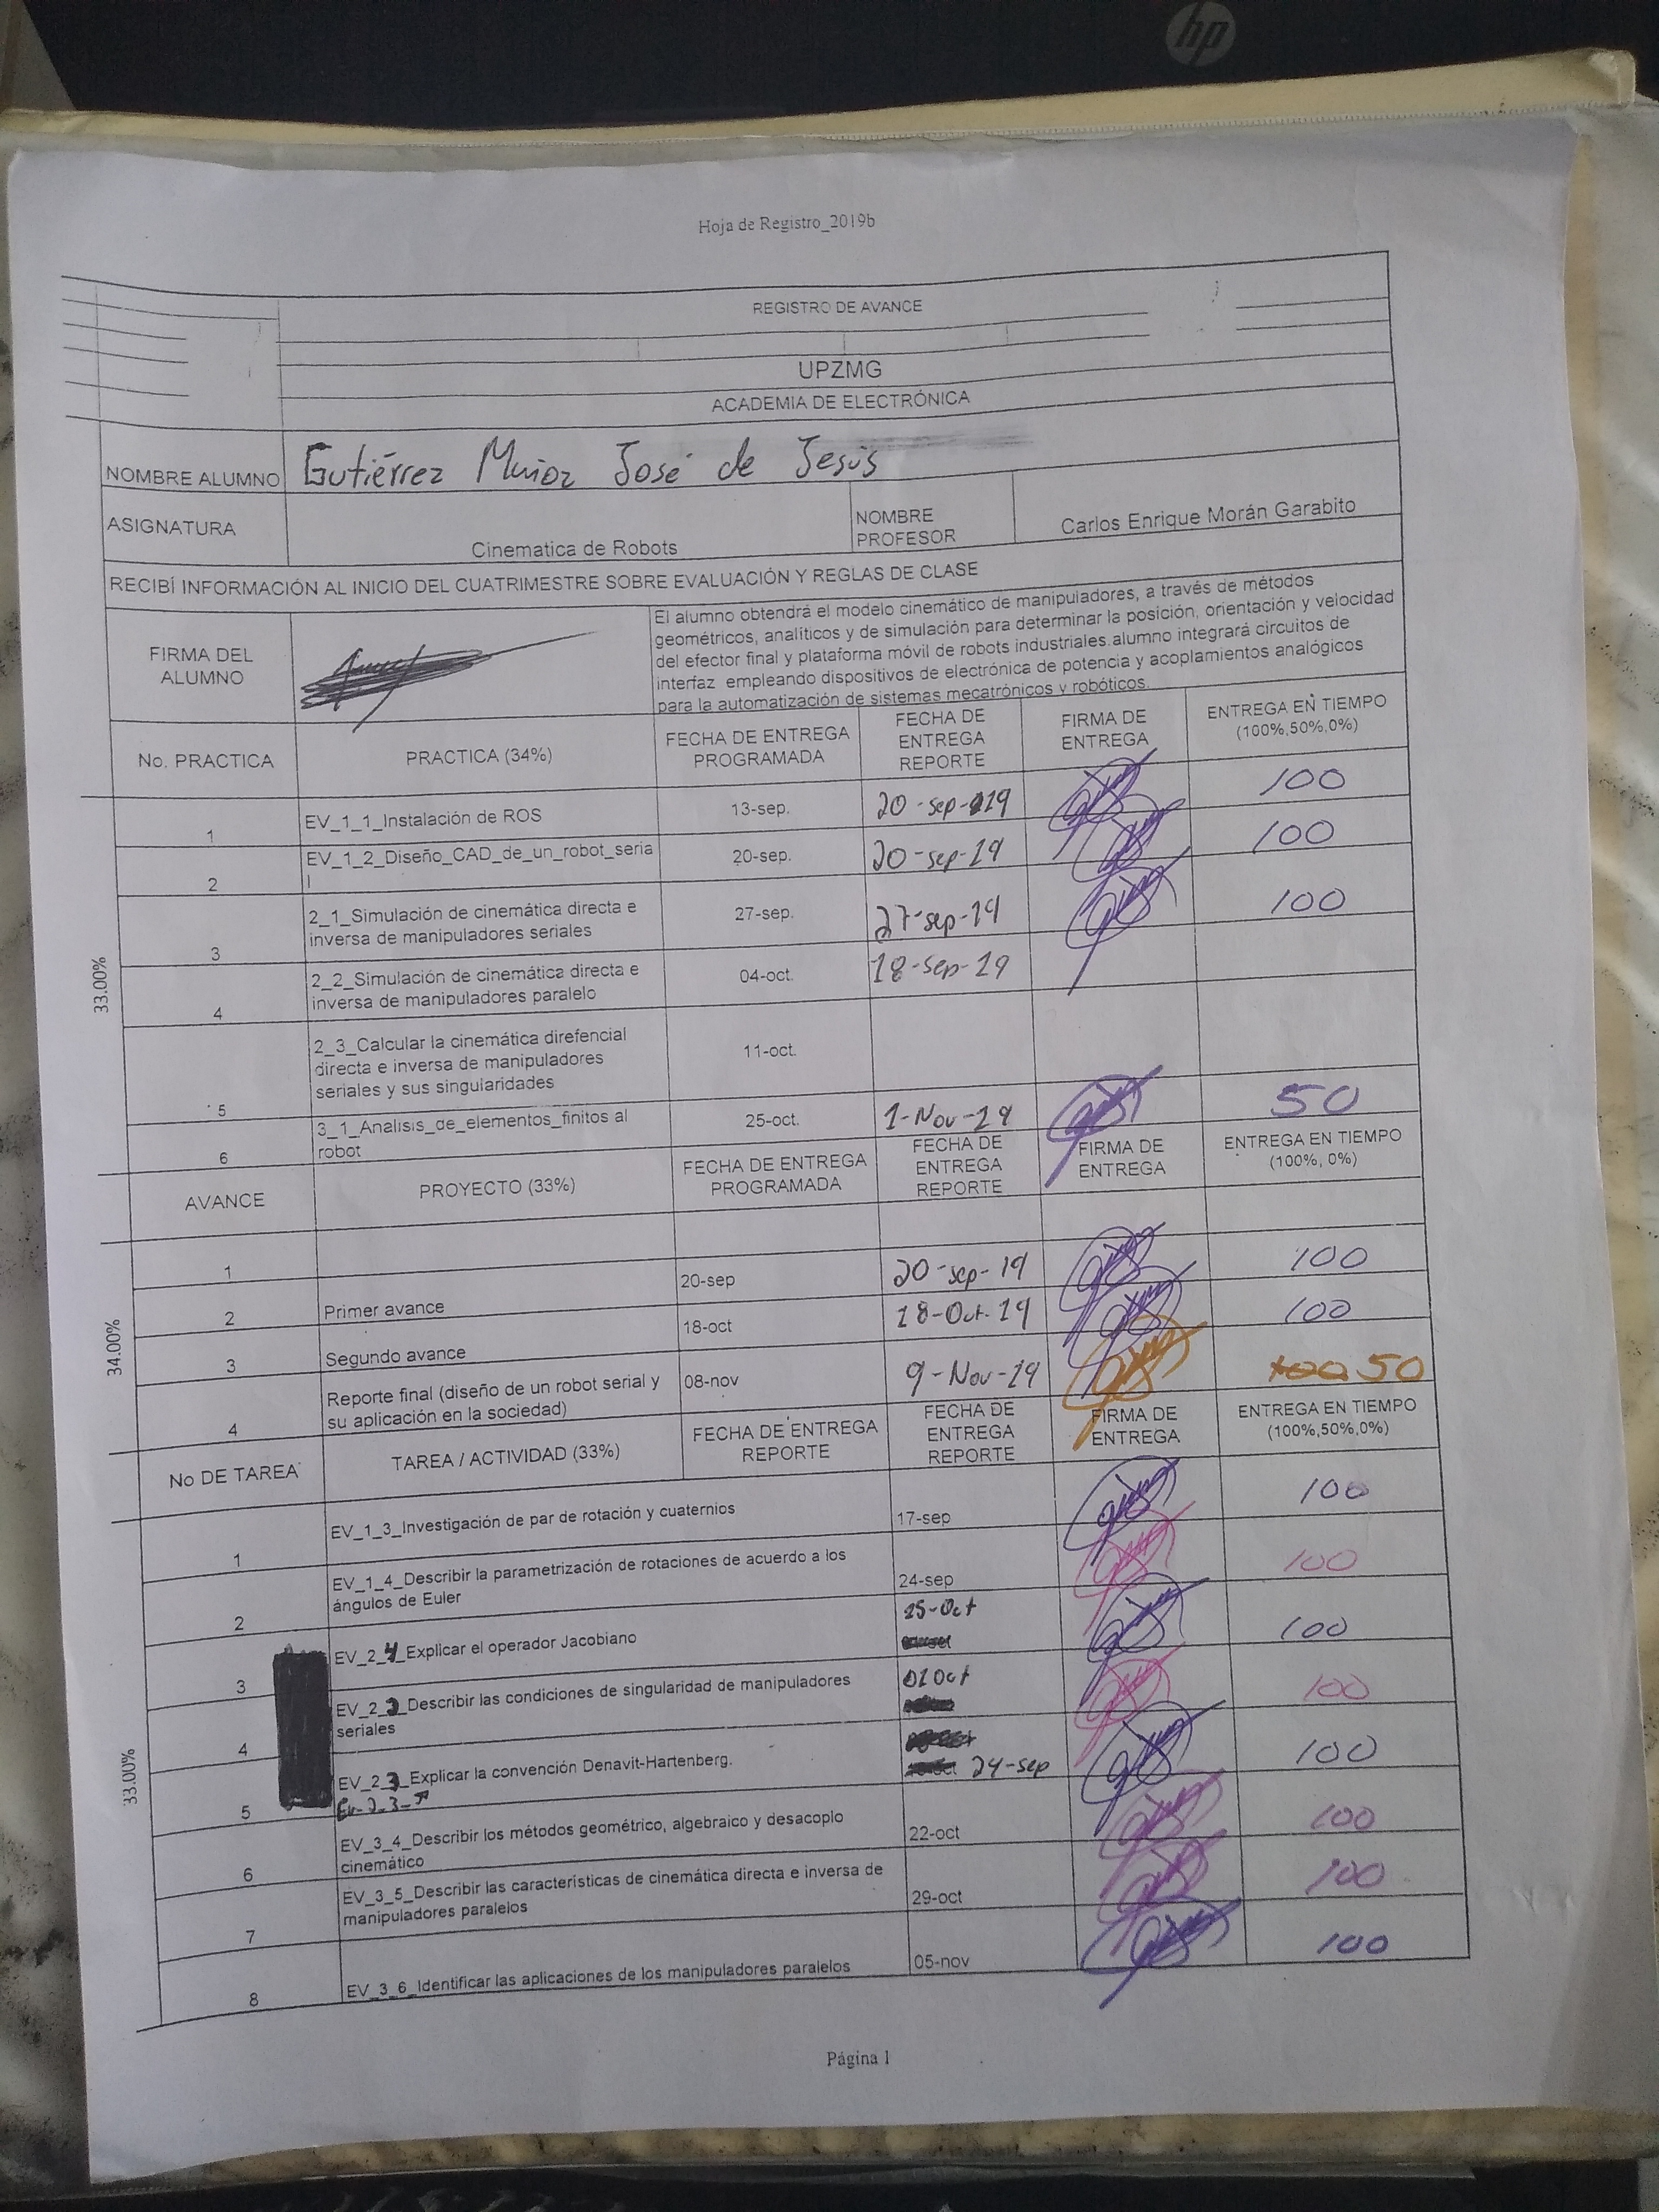 hp
Hoja de Registro_2019b
REGISTRO DE AVANCE
UPZMG
ACADEMIA DE ELECTRÓNICA
NOMBRE ALUMNO Gutiérrez Muñoz José de Jesús
ASIGNATURA Cinematica de Robots NOMBRE PROFESOR Carlos Enrique Morán Garabito
RECIBÍ INFORMACIÓN AL INICIO DEL CUATRIMESTRE SOBRE EVALUACIÓN Y REGLAS DE CLASE
FIRMA DEL ALUMNO
El alumno obtendrá el modelo cinemático de manipuladores, a través de métodos
geométricos, analíticos y de simulación para determinar la posición, orientación y velocidad
del efector final y plataforma móvil de robots industriales.alumno integrará circuitos de
interfaz empleando dispositivos de electrónica de potencia y acoplamientos analógicos
para la automatización de sistemas mecatrónicos y robóticos.
No. PRACTICA PRACTICA (34%) FECHA DE ENTREGA PROGRAMADA FECHA DE ENTREGA REPORTE FIRMA DE ENTREGA ENTREGA EN TIEMPO (100%,50%,0%)
33.00%
1 EV_1_1_Instalación de ROS 13-sep. 20-sep-19 100
2 EV_1_2_Diseño_CAD_de_un_robot_serial 20-sep. 20-sep-19 100
3 2_1_Simulación de cinemática directa e inversa de manipuladores seriales 27-sep. 27-sep-19 100
4 2_2_Simulación de cinemática directa e inversa de manipuladores paralelo 04-oct. 18-sep-19
5 2_3_Calcular la cinemática direfencial directa e inversa de manipuladores seriales y sus singularidades 11-oct.
6 3_1_Analisis_de_elementos_finitos al robot 25-oct. 1-Nov-19 50
AVANCE PROYECTO (33%) FECHA DE ENTREGA PROGRAMADA FECHA DE ENTREGA REPORTE FIRMA DE ENTREGA ENTREGA EN TIEMPO (100%, 0%)
34.00%
1 20-sep 20-sep-19 100
2 Primer avance 18-oct 18-Oct-19 100
3 Segundo avance 08-nov 9-Nov-19 100 50
4 Reporte final (diseño de un robot serial y su aplicación en la sociedad)
No DE TAREA TAREA / ACTIVIDAD (33%) FECHA DE ENTREGA REPORTE FECHA DE ENTREGA REPORTE FIRMA DE ENTREGA ENTREGA EN TIEMPO (100%,50%,0%)
33.00%
1 EV_1_3_Investigación de par de rotación y cuaternios 17-sep 100
2 EV_1_4_Describir la parametrización de rotaciones de acuerdo a los ángulos de Euler 24-sep 100
3 EV_2_4_Explicar el operador Jacobiano 25-Oct 100
4 EV_2_2_Describir las condiciones de singularidad de manipuladores seriales 01 Oct 100
5 EV_2_3_Explicar la convención Denavit-Hartenberg. 24-sep 100
6 EV_3_4_Describir los métodos geométrico, algebraico y desacoplo cinemático 22-oct 100
7 EV_3_5_Describir las características de cinemática directa e inversa de manipuladores paralelos 29-oct 100
8 EV_3_6_Identificar las aplicaciones de los manipuladores paralelos 05-nov 100
Página 1